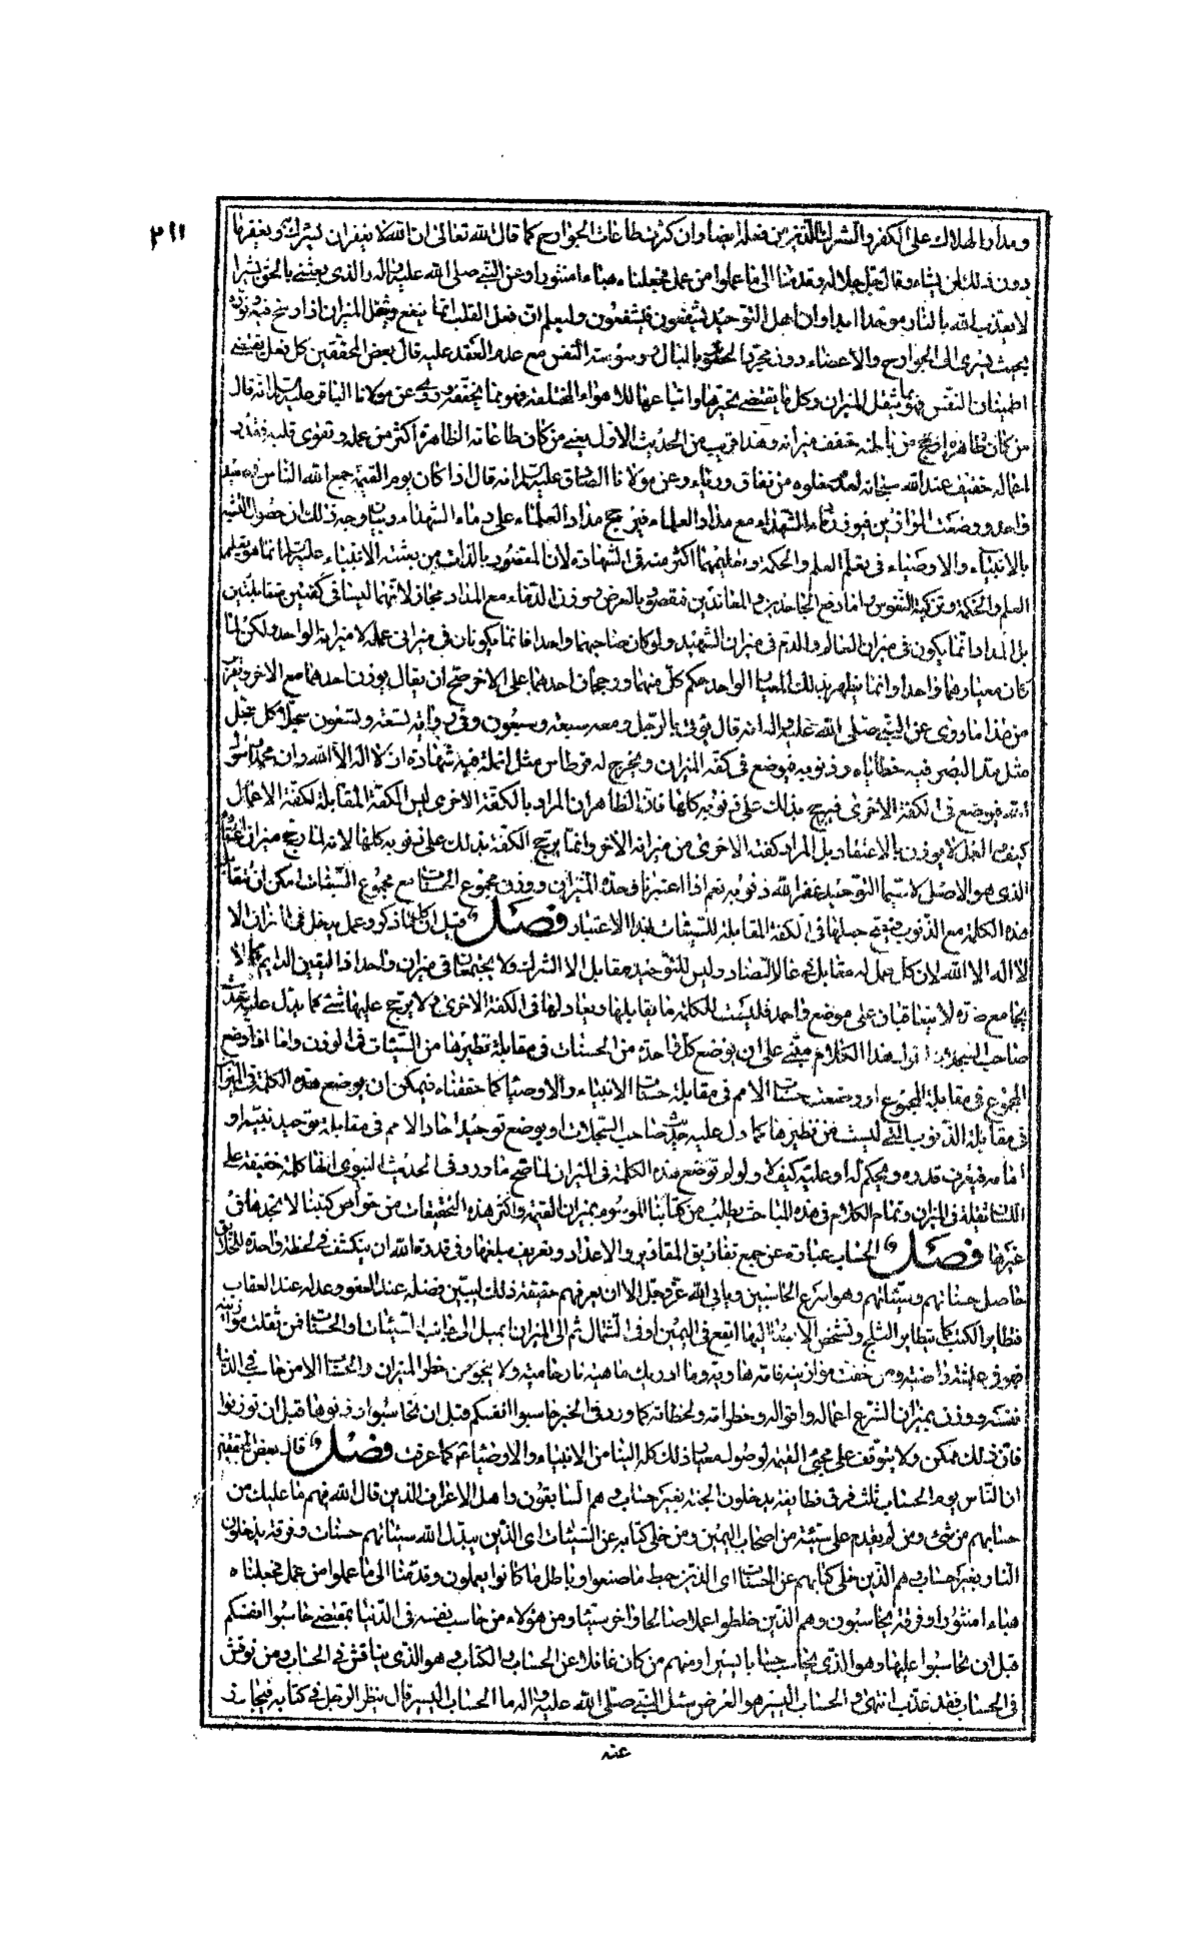 ٢١١
ومدار الهلاك على الكفر والشرك الذين من فعله ايضا وان كثرت طاعات الجوارح كما قال الله تعالى ان الله لا يغفر ان يشرك به ويغفر ما
دون ذلك لمن يشاء وقال جل جلاله وقدمنا الى ما عملوا من عمل فجعلناه هباء منثورا وعن النبي صلى الله عليه واله والذى بعثنى بالحق بشيرا
لا يعذب الله بالنار موحدا ابدا وان اهل التوحيد ليشفعون فيشفعون وليعلم ان فعل القلب انما ينفع ويثقل الميزان اذا رسخ فيه نوره
بحيث يسرى الى الجوارح والاعضاء دون مجرد الخطور بالبال ووسوسة النفس مع عدم العقد عليه قال بعض المحققين كل فعل يقتضى
اطمينان النفس فهو مما يثقل الميزان وكل ما يقتضى تحيرها واتباعها للاهواء المختلفة فهو مما يخففه وروى عن مولانا الباقر عليه السلام انه قال
من كان ظاهره ارجح من باطنه خفف ميزانه وهذا قريب من الحديث الاول يعنى من كان طاعاته الظاهرة اكثر من عمله وتقوى قلبه فقدر
اعماله خفيف عند الله سبحانه لعدم خلوه من نفاق ورياء وعن مولانا الصادق عليه السلام انه قال اذا كان يوم القيمة جمع الله الناس فى صعيد
واحد ووضعت الموازين فيوزن دماء الشهداء مع مداد العلماء فيرجح مداد العلماء على دماء الشهداء وبيان وجه ذلك ان حصول التشبه
بالانبياء والاوصياء فى تعلم العلم والحكمة وتعليمهما اكثر منه فى الشهادة لان المقصود بالذات من بعثة الانبياء عليهم السلام انما هو تعليم
العلم والحكمة وتزكية النفوس واما دفع الجاحدين والمعاندين فمقصود بالعرض ووزن الدماء مع المداد مجاز لانهما ليسا فى كفتين متقابلتين
بل المداد انما يكون فى ميزان العالم والدم فى ميزان الشهيد ولو كان صاحبهما واحدا فانما يكونان فى ميزانى عمله لا ميزانه الواحد ولكن لما
كان معيارهما واحدا وانما يظهر بذلك المعيار الواحد حكم كل منهما ورجحان احدهما على الاخر صح ان يقال يوزن احدهما مع الاخر ويقرب
من هذا ما روى عن النبى صلى الله عليه واله انه قال يؤتى بالرجل ومعه سبعة وسبعون وفى رواية تسعة وتسعون سجلا كل سجل
مثل مد البصر فيه خطاياه وذنوبه فيوضع فى كفة الميزان ويخرج له قرطاس مثل انملة فيه شهادة ان لا اله الا الله وان محمدا رسول
الله فيوضع فى الكفة الاخرى فيرجح بذلك على ذنوبه كلها فان الظاهر ان المراد بالكفة الاخرى ليس الكفة المقابلة لكفة الاعمال
كيف والعمل لا يوزن بالاعتقاد بل المراد كفته الاخرى من ميزانه الاخر وانما يرجح الكفة بذلك على ذنوبه كلها لانه لما رجح ميزان اعتقاده
الذى هو الاصل لا سيما التوحيد غفر الله ذنوبه نعم اذا اعتبرنا وحدة الميزانين ووزن مجموع الحسنات مع مجموع السيئات امكن ان يتقابل
هذه الكلمة مع الذنوب فيصح جعلها فى الكفة المقابلة للسيئات بهذا الاعتبار فصل قيل ان كل ذكر وعمل يدخل فى الميزان الا
لا اله الا الله لان كل عمل له مقابل فى عالم التضاد وليس للتوحيد مقابل الا الشرك ولا يجتمعان فى ميزان واحد اذ اليقين الدايم كما لا
يجامع ضده لا يتعاقبان على موضع واحد فليست للكلمة ما يقابلها ويعادلها فى الكفة الاخرى ولا يرجح عليها شئ كما يدل عليه حديث
صاحب السجلات اقول هذا الكلام مبنى على ان يوضع كل واحدة من الحسنات فى مقابلة نظيرها من السيئات فى الوزن واما اذا وضع
المجموع فى مقابلة المجموع او وضعت حسنات الامم فى مقابلة حسنات الانبياء والاوصياء كما حققناه فيمكن ان يوضع هذه الكلمة فى الميزان
فى مقابلة الذنوب التى ليست من نظيرها كما دل عليه حديث صاحب السجلات او يوضع توحيد احاد الامم فى مقابلة توحيد نبيه او
امامه فيعرف قدره ويحكم له او عليه كيف لا ولو لم توضع هذه الكلمة فى الميزان لما صح ما ورد فى الحديث النبوى انها كلمة خفيفة على
اللسان ثقيلة فى الميزان وتمام الكلام فى هذه المباحث يطلب من كتابنا الموسوم بميزان القيمة واكثر هذه التحقيقات من خواص كتبنا لا تجدها فى
غيرها فصل الحساب عبارة عن جمع تفاريق المقادير والاعداد وتعريف مبلغها وفى قدرة الله ان ينكشف فى لحظة واحدة للخلائق
حاصل حسناتهم وسيئاتهم وهو اسرع الحاسبين ويابى الله عز وجل الا ان يعرفهم حقيقة ذلك ليبين فضله عند العفو وعدله عند العقاب
فتطاير الكتب كما يتطاير الثلج وتشخص الابصار اليها اتقع فى اليمين او فى الشمال ثم الى الميزان ايميل الى جانب السيئات او الحسنات فمن ثقلت موازينه
فهو فى عيشة راضية ومن خفت موازينه فامه هاوية وما ادريك ما هيه نار حامية ولا ينجو من خطر الميزان والحساب الا من حاسب فى الدنيا
نفسه ووزن بميزان الشرع اعماله واقواله وخطراته ولحظاته كما ورد فى الخبر حاسبوا انفسكم قبل ان تحاسبوا وزنوها قبل ان توزنوا
فان ذلك ممكن ولا يتوقف على مجئ القيمة لوصول معيار ذلك كله الينا من الانبياء والاوصياء كما عرفت فصل قال بعض المحققين
ان الناس يوم الحساب ثلث فرق فطايفة يدخلون الجنة بغير حساب وهم السابقون واهل الاعراف الذين قال الله فيهم ما عليك من
حسابهم من شئ ومن لم يقدم على سيئة من اصحاب اليمين ومن خلى كتابه عن السيئات اى الذين يبدل الله سيئاتهم حسنات وفرقة يدخلون
النار بغير حساب وهم الذين خلى كتابهم عن الحسنات اى الذين حبط ما صنعوا وباطل ما كانوا يعملون وقدمنا الى ما عملوا من عمل فجعلناه
هباء منثورا وفرقة يحاسبون وهم الذين خلطوا عملا صالحا واخر سيئا ومن هؤلاء من حاسب نفسه فى الدنيا بمقتضى حاسبوا انفسكم
قبل ان تحاسبوا عليها وهو الذى يحاسب حسابا يسيرا ومنهم من كان غافلا عن الحساب والكتاب وهو الذى يناقش فى الحساب ومن نوقش
فى الحساب فقد عذب انتهى والحساب اليسير هو العرض سئل النبى صلى الله عليه واله ما الحساب اليسير قال ينظر الرجل فى كتابه فيتجاوز
عنه